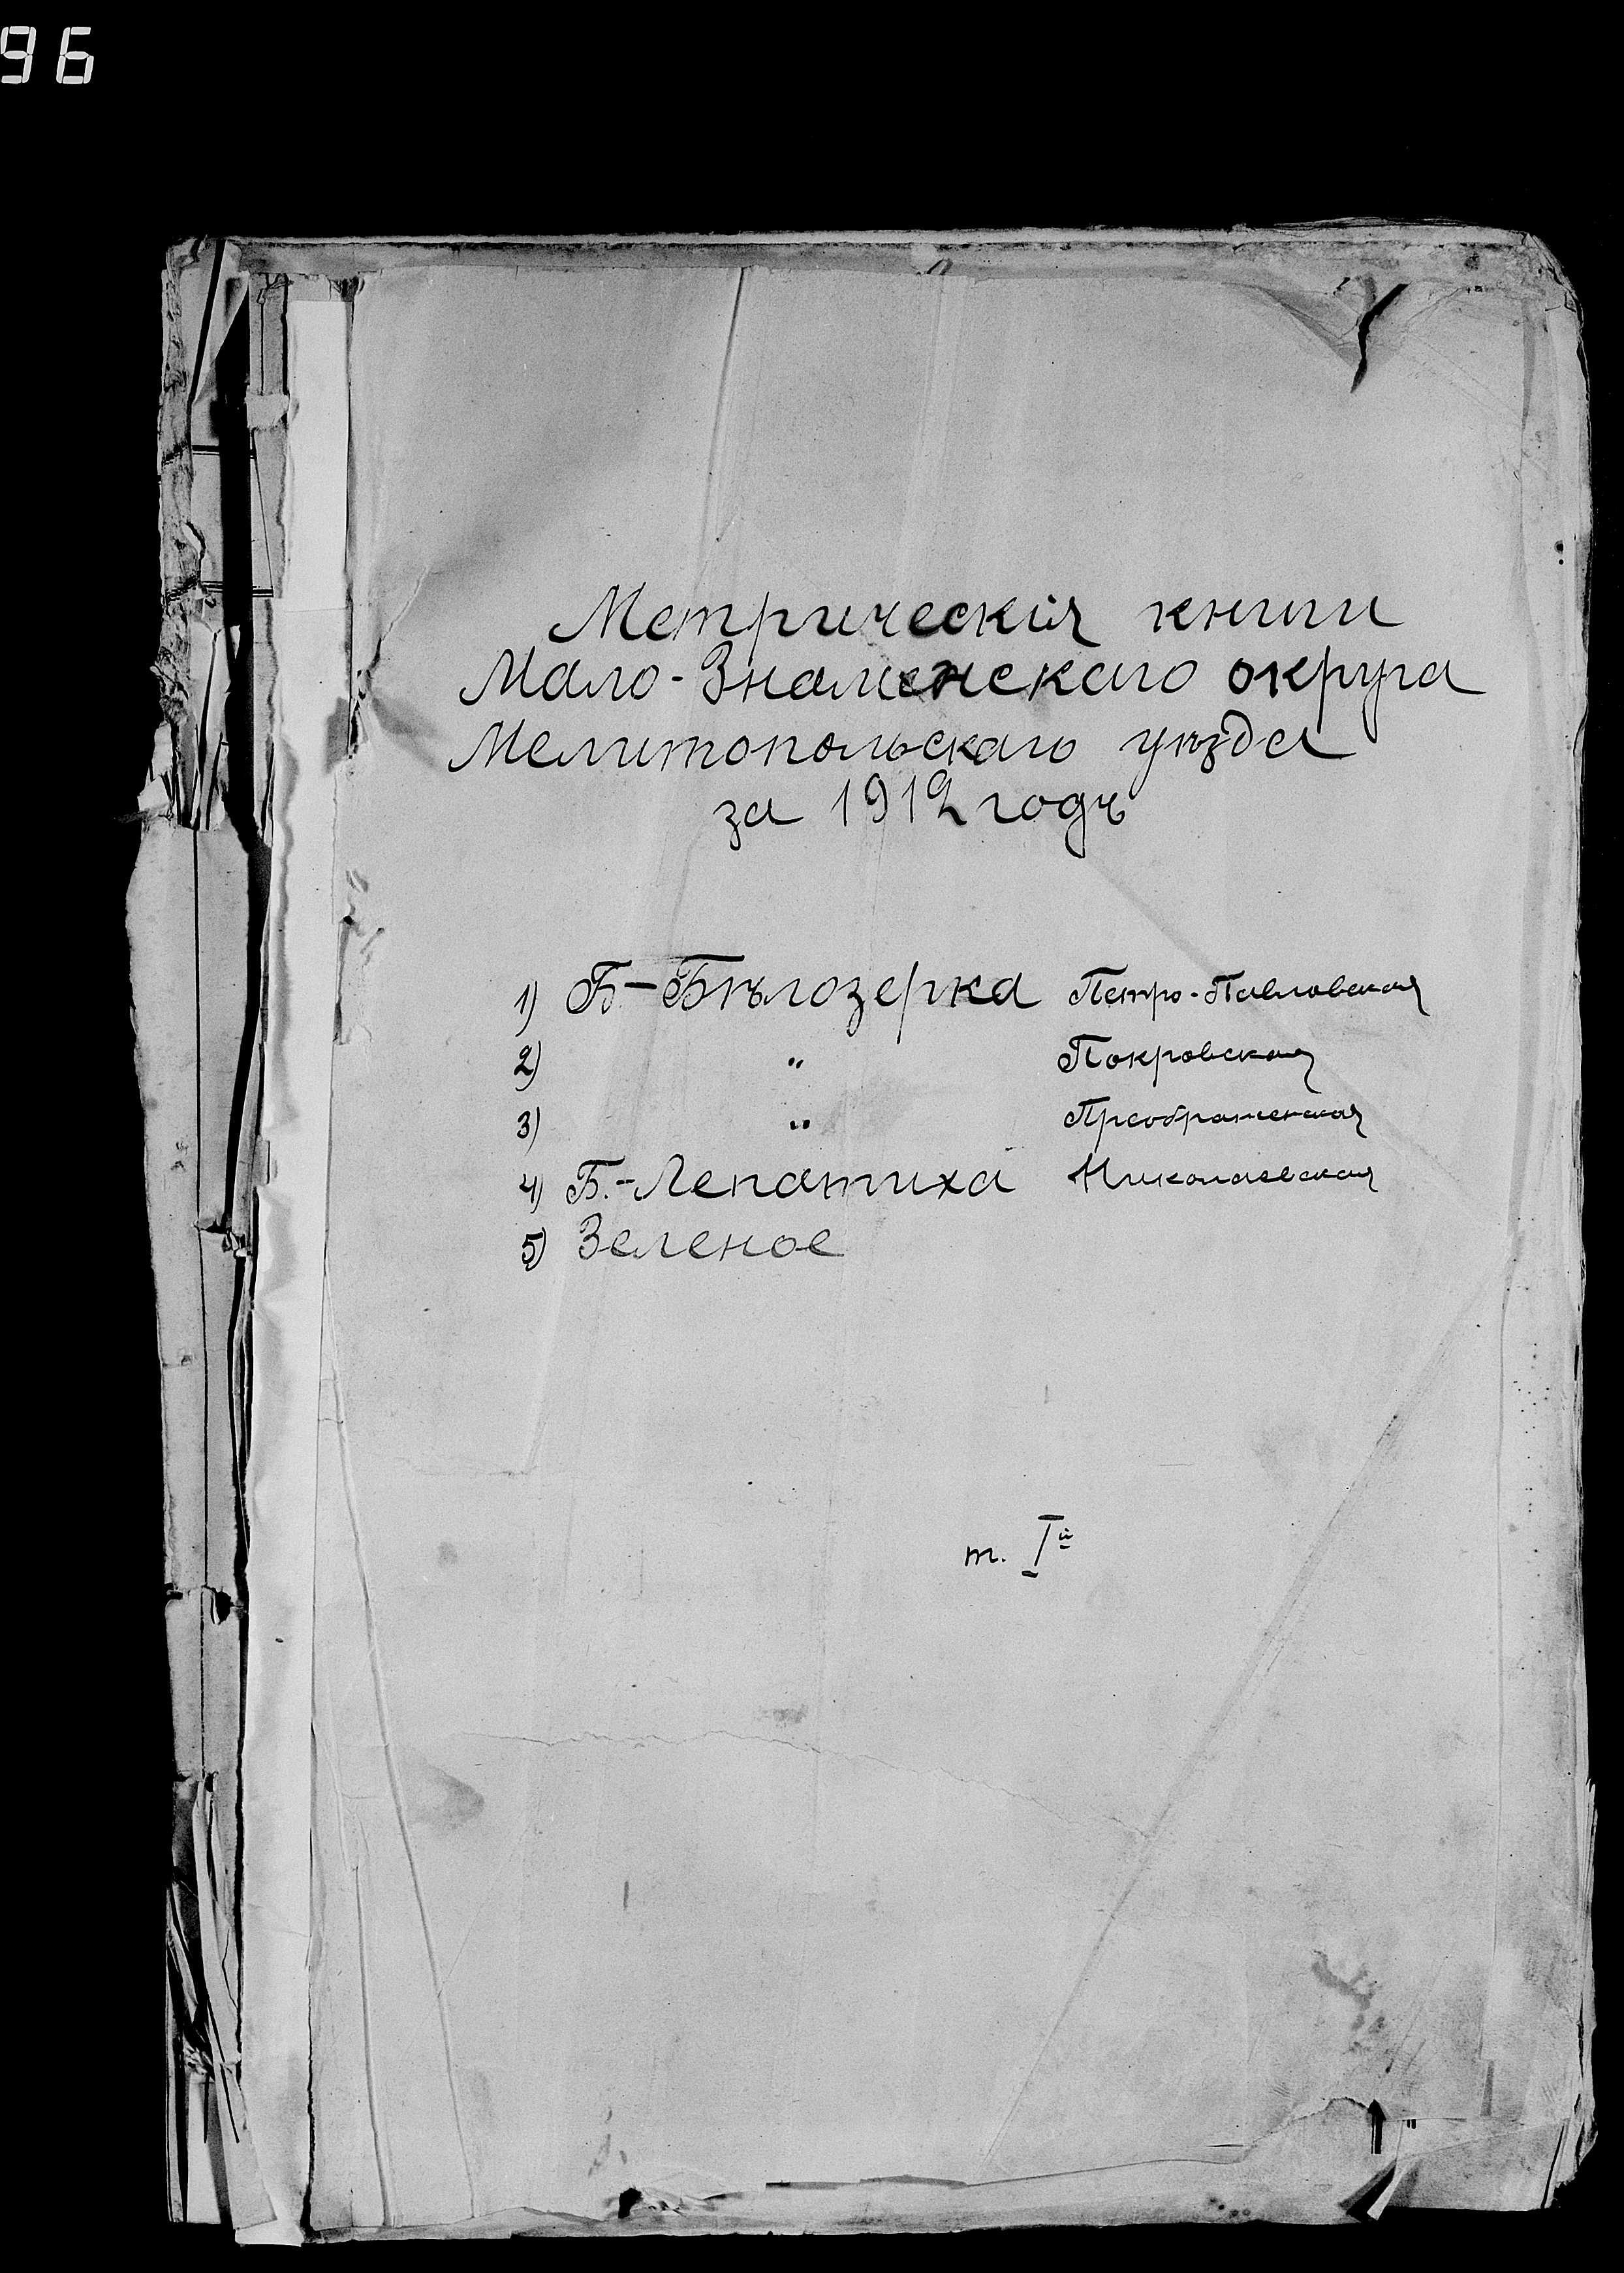 96
Метрическія книги
Мало-Знаменскаго округа
Мелитопольскаго уѣзда
за 1912 годъ
1) Б-Бѣлозерка Петро-Павловская
2) " Покровская
3) " Преображенская
4) Б.-Лепатиха Николаевская
5) Зеленое
т. Iй